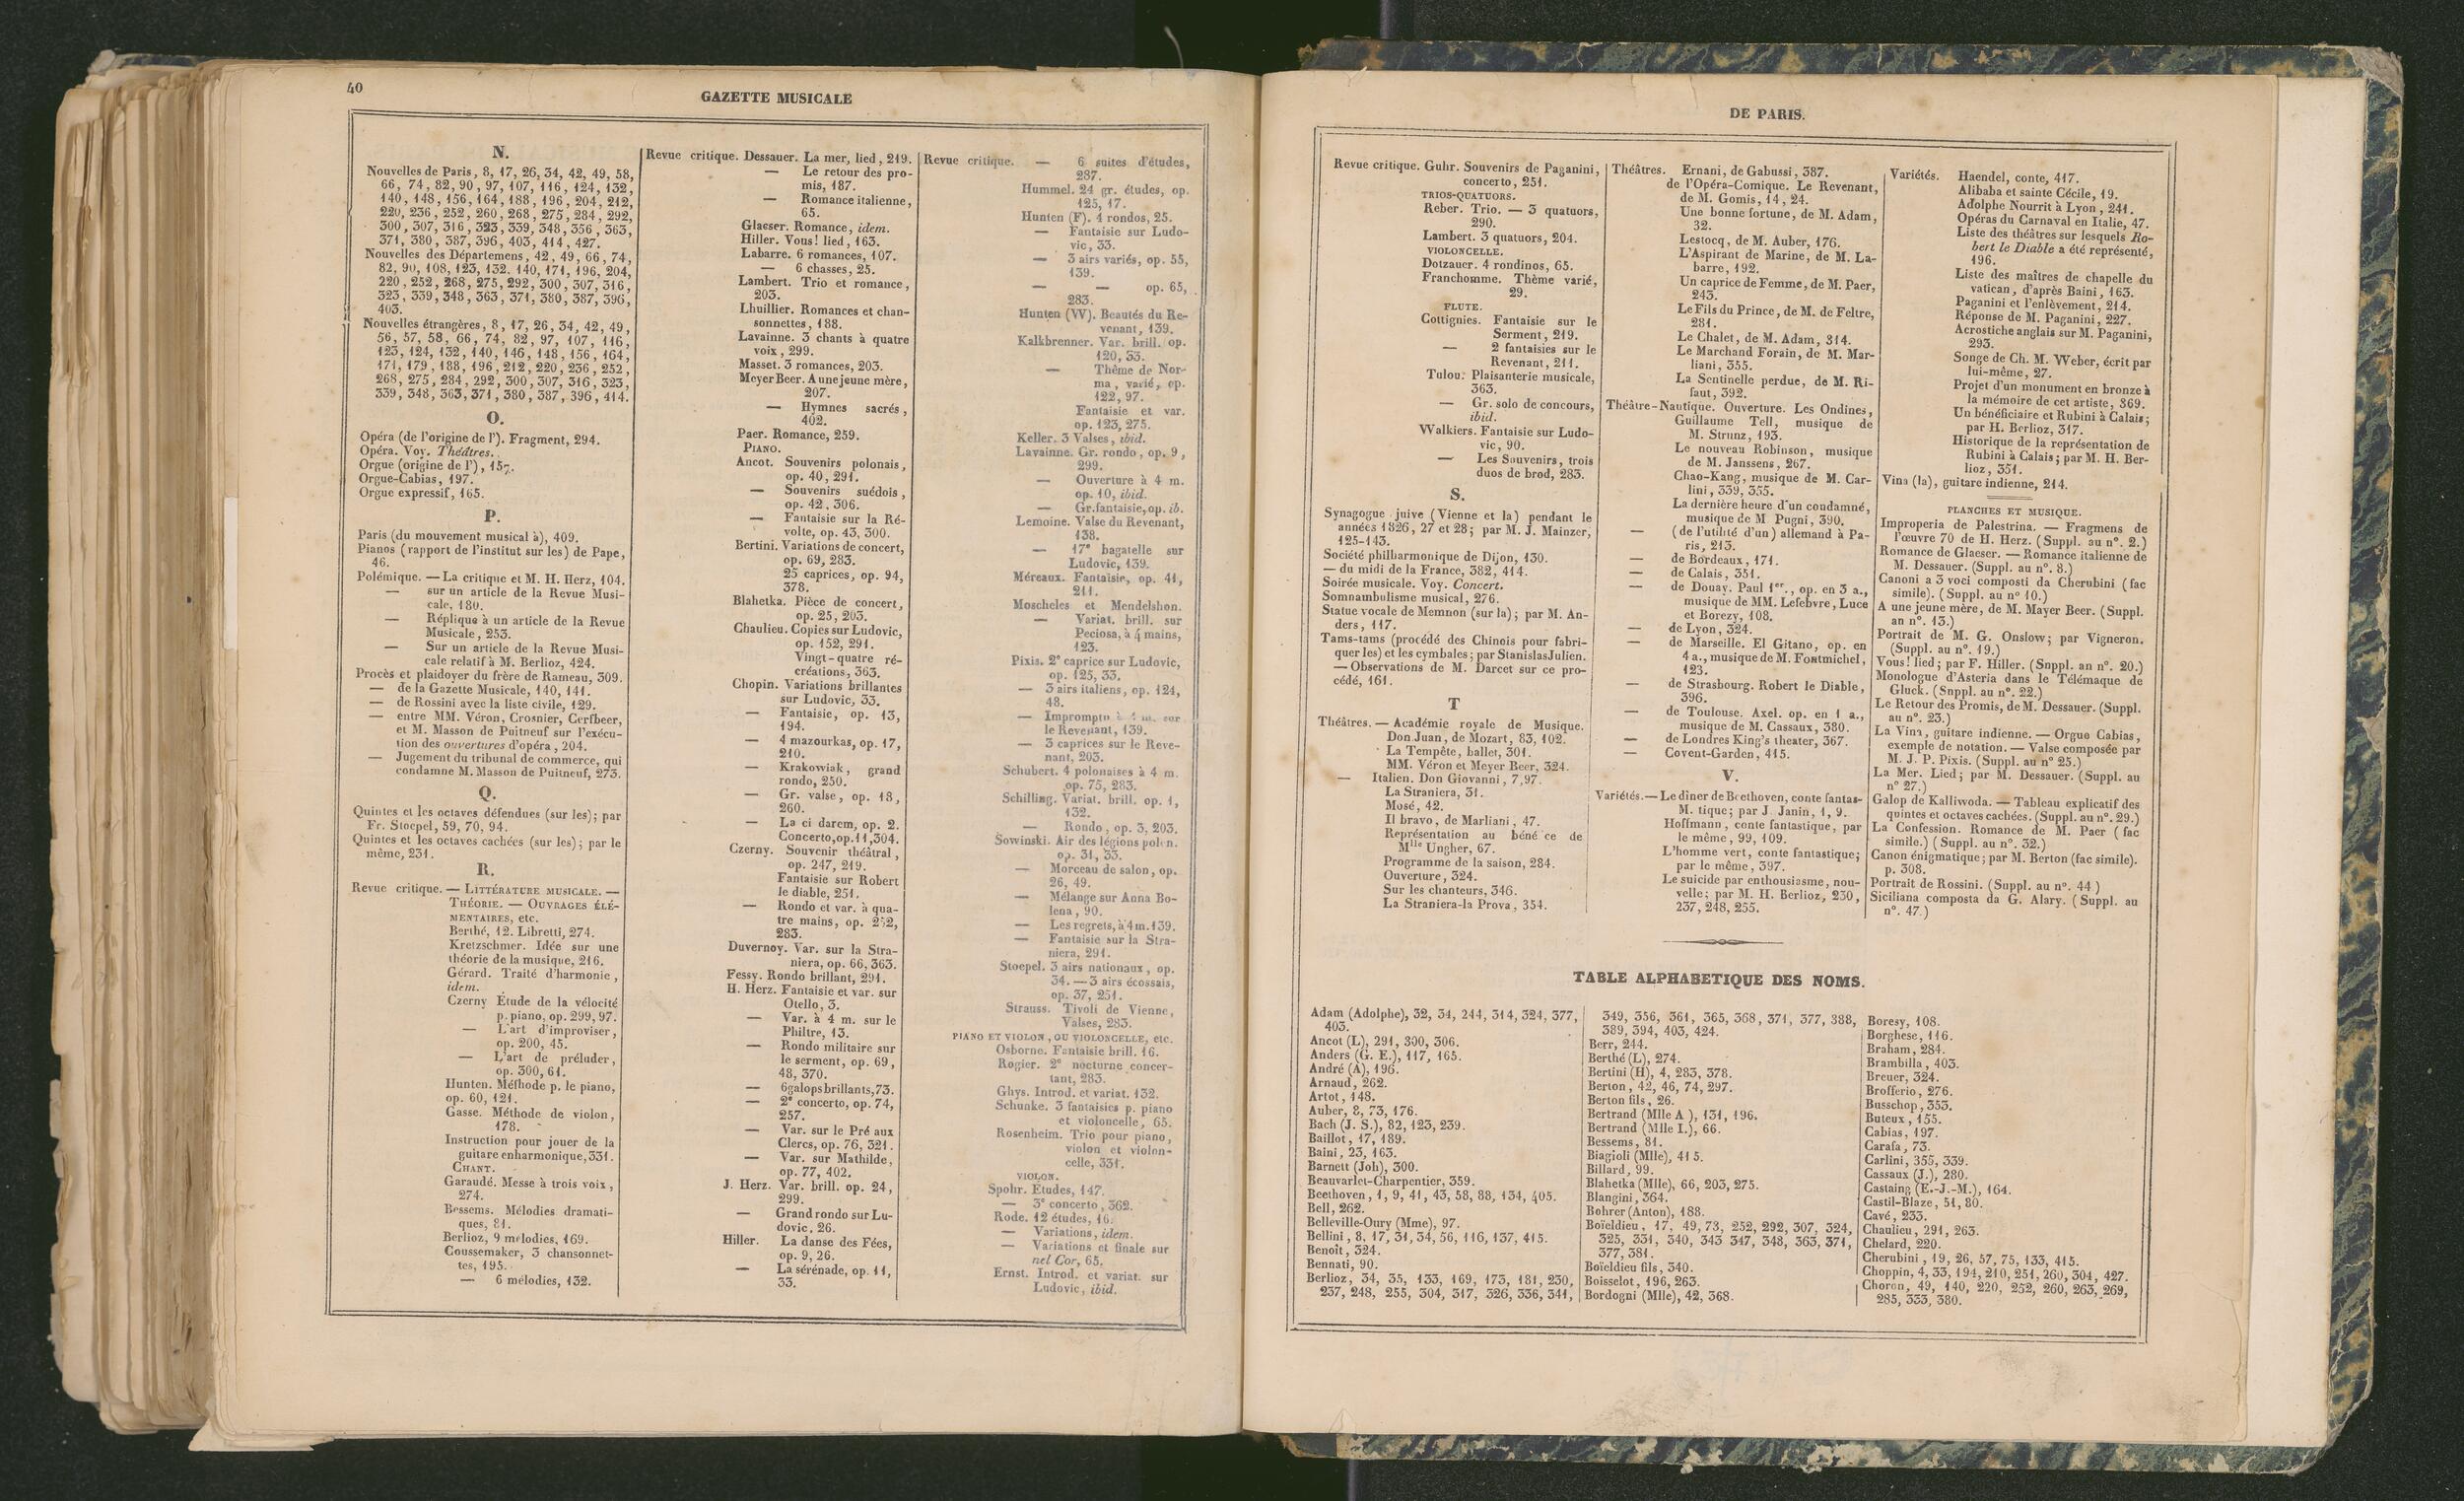 40
GAZETTE MUSICALE
N.
Nouvelles de Paris, 8, 17, 26, 34, 42, 49, 58,
66, 74, 82, 90, 97, 107, 116, 124, 132,
140, 148, 156, 164, 188, 196, 204, 212,
220, 236, 252, 260, 268, 275, 284, 292,
300, 307, 316, 323, 339, 348, 356, 363,
371, 380, 387, 396, 403, 414, 427.
Nouvelles des Départemens, 42, 49, 66, 74,
82, 90, 108, 123, 132. 140, 171, 196, 204,
220, 252, 268, 275, 292, 300, 307, 316,
323, 339, 348, 363, 371, 380, 387, 396,
403.
Nouvelles étrangères, 8, 17, 26, 34, 42, 49,
56, 57, 58, 66, 74, 82, 97, 107, 116,
123, 124, 132, 140, 146, 148, 156, 164,
171, 179, 188, 196, 212, 220, 236, 252,
268, 275, 284, 292, 300, 307, 316, 323,
339, 348, 363, 371, 380, 387, 396, 414.
O.
Opéra (de l'origine de l'). Fragment, 294.
Opéra. Voy. Théâtres.
Orgue (origine de l'), 157.
Orgue-Cabias, 197.
Orgue expressif, 165.
P.
Paris (du mouvement musical à), 409.
Pianos (rapport de l'institut sur les) de Pape,
46.
Polémique. — La critique et M. H. Herz, 104.
— sur un article de la Revue Musi-
cale, 180.
— Réplique à un article de la Revue
Musicale, 253.
— Sur un article de la Revue Musi-
cale relatif à M. Berlioz, 424.
Procès et plaidoyer du frère de Rameau, 309.
— de la Gazette Musicale, 140, 141.
— de Rossini avec la liste civile, 129.
— entre MM. Véron, Crosnier, Cerfbeer,
et M. Masson de Puitneuf sur l'exécu-
tion des ouvertures d'opéra, 204.
— Jugement du tribunal de commerce, qui
condamne M. Masson de Puitneuf, 273.
Q.
Quintes et les octaves défendues (sur les); par
Fr. Stoepel, 59, 70, 94.
Quintes et les octaves cachées (sur les); par le
même, 231.
R.
Revue critique. — LITTÉRATURE MUSICALE. —
THÉORIE. — OUVRAGES ÉLÉ-
MENTAIRES, etc.
Berthé, 12. Libretti, 274.
Kretzschmer. Idée sur une
théorie de la musique, 216.
Gérard. Traité d'harmonie,
idem.
Czerny Étude de la vélocité
p. piano, op. 299, 97.
— L'art d'improviser,
op. 200, 45.
— L'art de préluder,
op. 300, 61.
Hunten. Méthode p. le piano,
op. 60, 121.
Gasse. Méthode de violon,
178.
Instruction pour jouer de la
guitare enharmonique, 331.
CHANT.
Garaudé. Messe à trois voix,
274.
Bessems. Mélodies dramati-
ques, 81.
Berlioz, 9 mélodies, 169.
Coussemaker, 3 chansonnet-
tes, 195.
— 6 mélodies, 132.
Revue critique. Dessauer. La mer, lied, 219.
— Le retour des pro-
mis, 187.
— Romance italienne,
65.
Glaeser. Romance, idem.
Hiller. Vous! lied, 163.
Labarre. 6 romances, 107.
— 6 chasses, 25.
Lambert. Trio et romance,
203.
Lhuillier. Romances et chan-
sonnettes, 188.
Lavainne. 3 chants à quatre
voix, 299.
Masset. 3 romances, 203.
Meyer Beer. A une jeune mère,
207.
— Hymnes sacrés,
402.
Paer. Romance, 259.
PIANO.
Ancot. Souvenirs polonais,
op. 40, 291.
— Souvenirs suédois,
op. 42, 306.
— Fantaisie sur la Ré-
volte, op. 43, 300.
Bertini. Variations de concert,
op. 69, 283.
25 caprices, op. 94,
378.
Blahetka. Pièce de concert,
op. 25, 203.
Chaulieu. Copies sur Ludovic,
op. 152, 291.
Vingt-quatre ré-
créations, 363.
Chopin. Variations brillantes
sur Ludovic, 33.
— Fantaisie, op. 13,
194.
— 4 mazourkas, op. 17,
210.
— Krakowiak, grand
rondo, 250.
— Gr. valse, op. 18,
260.
— La ci darem, op. 2.
Concerto, op. 11, 304.
Czerny. Souvenir théâtral,
op. 247, 219.
Fantaisie sur Robert
le diable, 251.
— Rondo et var. à qua-
tre mains, op. 252,
283.
Duvernoy. Var. sur la Stra-
niera, op. 66, 363.
Fessy. Rondo brillant, 291.
H. Herz. Fantaisie et var. sur
Otello, 3.
— Var. à 4 m. sur le
Philtre, 13.
— Rondo militaire sur
le serment, op. 69,
48, 370.
— 6 galops brillants, 73.
— 2e concerto, op. 74,
257.
— Var. sur le Pré aux
Clercs, op. 76, 321.
— Var. sur Mathilde,
op. 77, 402.
J. Herz. Var. brill. op. 24,
299.
— Grand rondo sur Lu-
dovic. 26.
Hiller. La danse des Fées,
op. 9, 26.
— La sérénade, op. 11,
33.
Revue critique. — 6 suites d'études,
287.
Hummel. 24 gr. études, op.
125, 17.
Hunten (F). 4 rondos, 25.
— Fantaisie sur Ludo-
vic, 33.
— 3 airs variés, op. 55,
139.
— — op. 65,
283.
Hunten (W). Beautés du Re-
venant, 139.
Kalkbrenner. Var. brill. op.
120, 33.
— Thême de Nor-
ma, varié, op.
122, 97.
Fantaisie et var.
op. 123, 275.
Keller. 3 Valses, ibid.
Lavainne. Gr. rondo, op. 9,
299.
— Ouverture à 4 m.
op. 10, ibid.
— Gr. fantaisie, op. ib.
Lemoine. Valse du Revenant,
138.
— 17e bagatelle sur
Ludovic, 139.
Méreaux. Fantaisie, op. 41,
211.
Moscheles et Mendelshon.
— Variat. brill. sur
Peciosa, à 4 mains,
123.
Pixis. 2e caprice sur Ludovic,
op. 125, 33.
— 3 airs italiens, op. 124,
48.
— Impromptu à 4 m. sur
le Revenant, 139.
— 3 caprices sur le Reve-
nant, 203.
Schubert. 4 polonaises à 4 m.
op. 75, 283.
Schilling. Variat. brill. op. 1,
132.
— Rondo, op. 3, 203.
Sowinski. Air des légions polon.
op. 31, 33.
— Morceau de salon, op.
26, 49.
— Mélange sur Anna Bo-
lena, 90.
— Les regrets, à 4 m. 139.
— Fantaisie sur la Stra-
niera, 291.
Stoepel. 3 airs nationaux, op.
34. — 3 airs écossais,
op. 37, 251.
Strauss. Tivoli de Vienne,
Valses, 283.
PIANO ET VIOLON, OU VIOLONCELLE, etc.
Osborne. Fantaisie brill. 16.
Rogier. 2e nocturne concer-
tant, 283.
Ghys. Introd. et variat. 132.
Schunke. 3 fantaisies p. piano
et violoncelle, 65.
Rosenheim. Trio pour piano,
violon et violon-
celle, 331.
VIOLON.
Spohr. Etudes, 147.
— 3e concerto, 362.
Rode. 12 études, 16.
— Variations, idem.
— Variations et finale sur
nel Cor, 65.
Ernst. Introd. et variat. sur
Ludovic, ibid.
DE PARIS.
Revue critique. Guhr. Souvenirs de Paganini,
concerto, 251.
TRIOS-QUATUORS.
Reber. Trio. — 3 quatuors,
290.
Lambert. 3 quatuors, 204.
VIOLONCELLE.
Dotzauer. 4 rondinos, 65.
Franchomme. Thème varié,
29.
FLUTE.
Cottignies. Fantaisie sur le
Serment, 219.
— 2 fantaisies sur le
Revenant, 211.
Tulou. Plaisanterie musicale,
363.
— Gr. solo de concours,
ibid.
Walkiers. Fantaisie sur Ludo-
vic, 90.
— Les Souvenirs, trois
duos de brod, 283.
S.
Synagogue juive (Vienne et la) pendant le
années 1826, 27 et 28; par M. J. Mainzer,
125-143.
Société philharmonique de Dijon, 130.
— du midi de la France, 382, 414.
Soirée musicale. Voy. Concert.
Somnambulisme musical, 276.
Statue vocale de Memnon (sur la); par M. An-
ders, 117.
Tams-tams (procédé des Chinois pour fabri-
quer les) et les cymbales; par Stanislas Julien.
— Observations de M. Darcet sur ce pro-
cédé, 161.
T
Théâtres. — Académie royale de Musique.
Don Juan, de Mozart, 83, 102.
La Tempête, ballet, 301.
MM. Véron et Meyer Beer, 324.
— Italien. Don Giovanni, 7, 97.
La Straniera, 31.
Mosé, 42.
Il bravo, de Marliani, 47.
Représentation au béné ce de
Mlle Ungher, 67.
Programme de la saison, 284.
Ouverture, 324.
Sur les chanteurs, 346.
La Straniera-la Prova, 354.
Théâtres. Ernani, de Gabussi, 387.
de l'Opéra-Comique. Le Revenant,
de M. Gomis, 14, 24.
Une bonne fortune, de M. Adam,
32.
Lestocq, de M. Auber, 176.
L'Aspirant de Marine, de M. La-
barre, 192.
Un caprice de Femme, de M. Paer,
243.
Le Fils du Prince, de M. de Feltre,
281.
Le Chalet, de M. Adam, 314.
Le Marchand Forain, de M. Mar-
liani, 355.
La Sentinelle perdue, de M. Ri-
faut, 392.
Théâtre-Nautique. Ouverture. Les Ondines,
Guillaume Tell, musique de
M. Strunz, 193.
Le nouveau Robinson, musique
de M. Janssens, 267.
Chao-Kang, musique de M. Car-
lini, 339, 355.
La dernière heure d'un condamné,
musique de M Pugni, 390.
— (de l'utilité d'un) allemand à Pa-
ris, 213.
— de Bordeaux, 171.
— de Calais, 351.
— de Douay. Paul 1er., op. en 3 a.,
musique de MM. Lefebvre, Luce
et Borezy, 108.
— de Lyon, 324.
— de Marseille. El Gitano, op. en
4 a., musique de M. Fontmichel,
123.
— de Strasbourg. Robert le Diable,
396.
— de Toulouse. Axel. op. en 1 a.,
musique de M. Cassaux, 380.
— de Londres King's theater, 367.
— Covent-Garden, 415.
V.
Variétés. — Le dîner de Beethoven, conte fantas-
M. tique; par J. Janin, 1, 9.
Hoffmann, conte fantastique, par
le même, 99, 109.
L'homme vert, conte fantastique;
par le même, 397.
Le suicide par enthousiasme, nou-
velle; par M. H. Berlioz, 230,
237, 248, 255.
Variétés. Haendel, conte, 417.
Alibaba et sainte Cécile, 19.
Adolphe Nourrit à Lyon, 241.
Opéras du Carnaval en Italie, 47.
Liste des théâtres sur lesquels Ro-
bert le Diable a été représenté,
196.
Liste des maîtres de chapelle du
vatican, d'après Baini, 163.
Paganini et l'enlèvement, 214.
Réponse de M. Paganini, 227.
Acrostiche anglais sur M. Paganini,
293.
Songe de Ch. M. Weber, écrit par
lui-même, 27.
Projet d'un monument en bronze à
la mémoire de cet artiste, 369.
Un bénéficiaire et Rubini à Calais;
par H. Berlioz, 317.
Historique de la représentation de
Rubini à Calais; par M. H. Ber-
lioz, 351.
Vina (la), guitare indienne, 214.
PLANCHES ET MUSIQUE.
Improperia de Palestrina. — Fragmens de
l'œuvre 70 de H. Herz. (Suppl. au n°. 2.)
Romance de Glaeser. — Romance italienne de
M. Dessauer. (Suppl. au n°. 8.)
Canoni a 3 voci composti da Cherubini (fac
simile). (Suppl. au n° 10.)
A une jeune mère, de M. Mayer Beer. (Suppl.
an n°. 13.)
Portrait de M. G. Onslow; par Vigneron.
(Suppl. au n°. 19.)
Vous! lied; par F. Hiller. (Snppl. an n°. 20.)
Monologue d'Asteria dans le Télémaque de
Gluck. (Snppl. au n°. 22.)
Le Retour des Promis, de M. Dessauer. (Suppl.
au n°. 23.)
La Vina, guitare indienne. — Orgue Cabias,
exemple de notation. — Valse composée par
M. J. P. Pixis. (Suppl. au n° 25.)
La Mer. Lied; par M. Dessauer. (Suppl. au
n° 27.)
Galop de Kalliwoda. — Tableau explicatif des
quintes et octaves cachées. (Suppl. au n°. 29.)
La Confession. Romance de M. Paer (fac
simile.) (Suppl. au n°. 32.)
Canon énigmatique; par M. Berton (fac simile).
p. 308.
Portrait de Rossini. (Suppl. au n°. 44)
Siciliana composta da G. Alary. (Suppl. au
n°. 47.)
TABLE ALPHABETIQUE DES NOMS.
Adam (Adolphe), 32, 34, 244, 314, 324, 377,
403.
Ancot (L), 291, 300, 306.
Anders (G. E.), 117, 165.
André (A), 196.
Arnaud, 262.
Artot, 148.
Auber, 8, 73, 176.
Bach (J. S.), 82, 123, 239.
Baillot, 17, 189.
Baini, 23, 163.
Barnett (Joh), 300.
Beauvarlet-Charpentier, 359.
Beethoven, 1, 9, 41, 43, 58, 88, 134, 405.
Bell, 262.
Belleville-Oury (Mme), 97.
Bellini, 8, 17, 31, 34, 56, 116, 137, 415.
Benoît, 324.
Bennati, 90.
Berlioz, 34, 35, 133, 169, 173, 181, 230,
237, 248, 255, 304, 317, 326, 336, 341,
349, 356, 361, 365, 368, 371, 377, 388,
389, 394, 403, 424.
Berr, 244.
Berthé (L), 274.
Bertini (H), 4, 283, 378.
Berton, 42, 46, 74, 297.
Berton fils, 26.
Bertrand (Mlle A), 131, 196.
Bertrand (Mlle I.), 66.
Bessems, 81.
Biagioli (Mlle), 415.
Billard, 99.
Blahetka (Mlle), 66, 203, 275.
Blangini, 364.
Bohrer (Anton), 188.
Boïeldieu, 17, 49, 73, 252, 292, 307, 324,
325, 331, 340, 343 347, 348, 363, 371,
377, 381.
Boïeldieu fils, 340.
Boisselot, 196, 263.
Bordogni (Mlle), 42, 368.
Boresy, 108.
Borghese, 116.
Braham, 284.
Brambilla, 403.
Breuer, 324.
Brofferio, 276.
Busschop, 353.
Buteux, 155.
Cabias, 197.
Carafa, 73.
Carlini, 355, 339.
Cassaux (J.), 280.
Castaing (E.-J.-M.), 164.
Castil-Blaze, 51, 80.
Cavé, 233.
Chaulieu, 291, 263.
Chelard, 220.
Cherubini, 19, 26, 57, 75, 133, 415.
Choppin, 4, 33, 194, 210, 251, 260, 304, 427.
Choron, 49, 140, 220, 252, 260, 263, 269,
285, 333, 380.